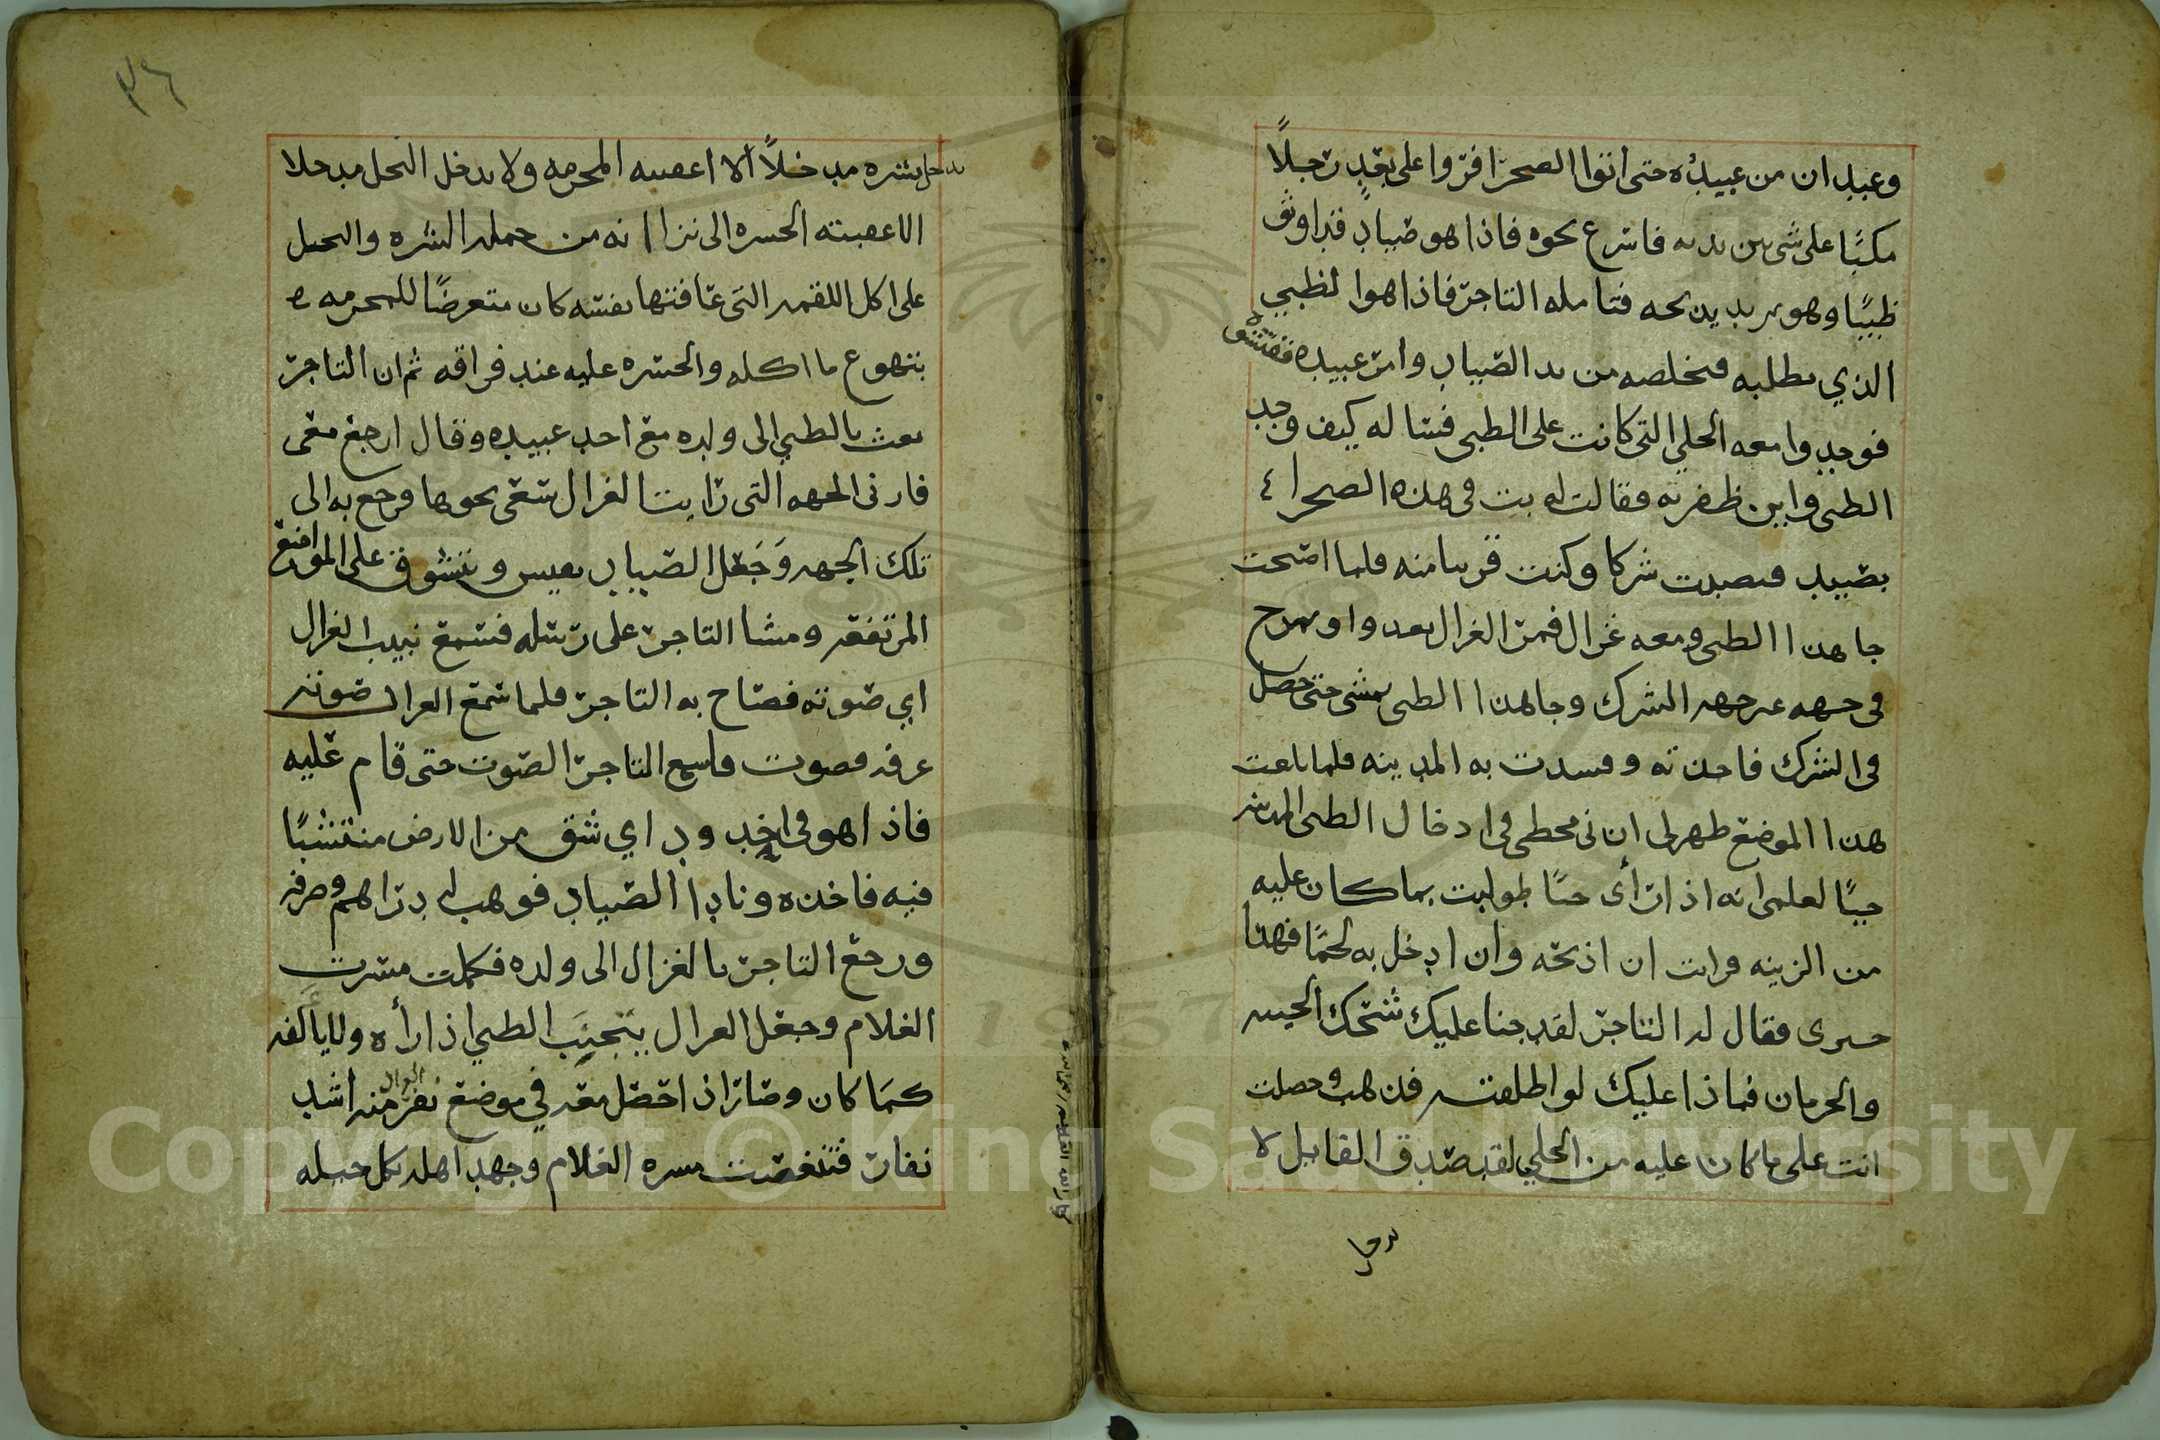 وعبدان من عبيده حتى اتوا الصحرا فروا على بعد رجلاً
مكبًا على شى بين يديه فاسرع نحوه فاذا هو صياد قد اوثق
ظبيًا وهو يريد يذبحه فتامله التاجر فاذا هوا لظبي
الذي يطلبه فخلصه من يد الصياد وامر عبيده ففتشوه
فوجدوا معه الحلي التى كانت على الظبى فساله كيف وجد
الظبى واين ظفر به فقال له بت فى هذه الصحرا
بصيد فنصبت شركا وكنت قريبا منه فلما اصبحت
جا هذا الظبى ومعه غزال فمر الغزال يعدوا ويمرح
فى جهه غير جهه الشرك وجا هذا الظبى يمشى حتى حصل
فى الشرك فاخذته وقصدت به المدينه فلما بلغت
هذا الموضع ظهر لى انى مخطى فى ادخال الظبى المدينه
حيًا لعلمى انه اذا رأى حيًا طولبت بما كان عليه
من الزينه فرايت ان اذبحه وان ادخل به لحمًا فهذا
خبرى فقال له التاجر لقد جنا عليك شحك الخيبه
والحرمان فماذا عليك لو اطلقته فذهب وحصلت
انت على ما كان عليه من الحلي لقد صدق القايل لا
يدخل
٣٦
يدخل بشره مدخلاً الا اعقبه المحرمه ولا يدخل البخل مدخلا
الا اعقبته الحسره الى نزا انه من حمله الشره والبخل
على اكل اللقمه التى عافتها نفسه كان متعرضًا للمحرمه
بتهوع ما اكله والحسره عليه عند فراقه ثم ان التاجر
بعث بالظبي الى ولده مع احد عبيده وقال ارجع معى
فارنى الجهه التى رايت الغزال سعى نحوها فرجع به الى
تلك الجهه وجعل الصياد يعيس ويتشوف على المواضع
المرتفعه ومشا التاجر على رسله فسمع نبيب الغزال
اي صوته فصاح به التاجر فلما سمع الغزال صوته
عرفه فصوت فاسمع التاجر الصوت حتى قام عليه
فاذا هو فى اخدود اي شق من الارض منتشبًا
فيه فاخذه ونادا الصياد فوهب له دراهم وصرفه
ورجع التاجر بالغزال الى ولده فكملت مسرت
الغلام وجعل الغزال يتجنب الظبي اذا رأه ولا يالفه
كما كان وصار اذا حصل معه في موضع نفر الغزال منه اشد
نفار فتنغصت مسره الغلام وجهد اهله بكل حيله
Copyright © King Saud University
1957